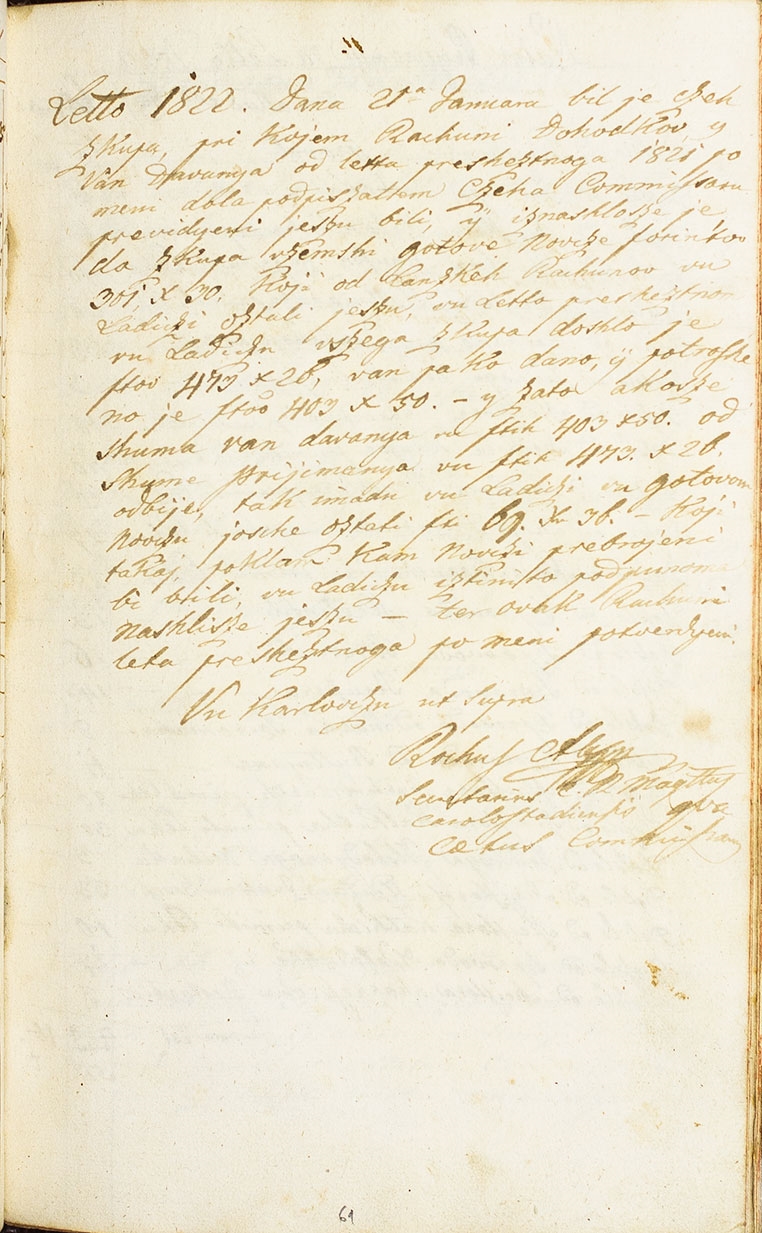 Letto 1822. Dana 21a Januara bil je Czeh
zkupa, pri kojem Rachuni Dohodkov, y
Van Davanya od letta preshesztnoga 1821 po
meni dola podpiszattem Czeha Commissaru
previdyeni jeszu bili, ÿ iznashloszе je
da zkupa vzemshi gotove Novcze forintov
301 x 30. Koji od Lanzkeh Rachunov vu
Ladiczi osztali jeszu, vu Letto preshesztnom
vu Ladiczu vszega zkupa doshlo je
ftov 473 x 26, van pako dano, ÿ potroshe
no je ftov 403 x 50. – y zato akosze
shuma van davanya vu ftih 403 x 50. od
shume prijimanya vu ftih 473. x 26.
odbije, tak imadu vu Ladiczi vu gotovom
Novczu joshche osztati fti 69. Xr 36. – Koji
takaj, poklam kam Novczi prebrojeni
bi bili, vu Ladiczu isztinito podpunoma
nashlisze jeszu – ter ovak Rachuni
leta preshesztnoga po meni potverdyeni.
Vu Karlovczu ut Supra
Rochus
Secretarius L. R. Magttus
Carolostadiensis qua
Cætus Commissarius
61